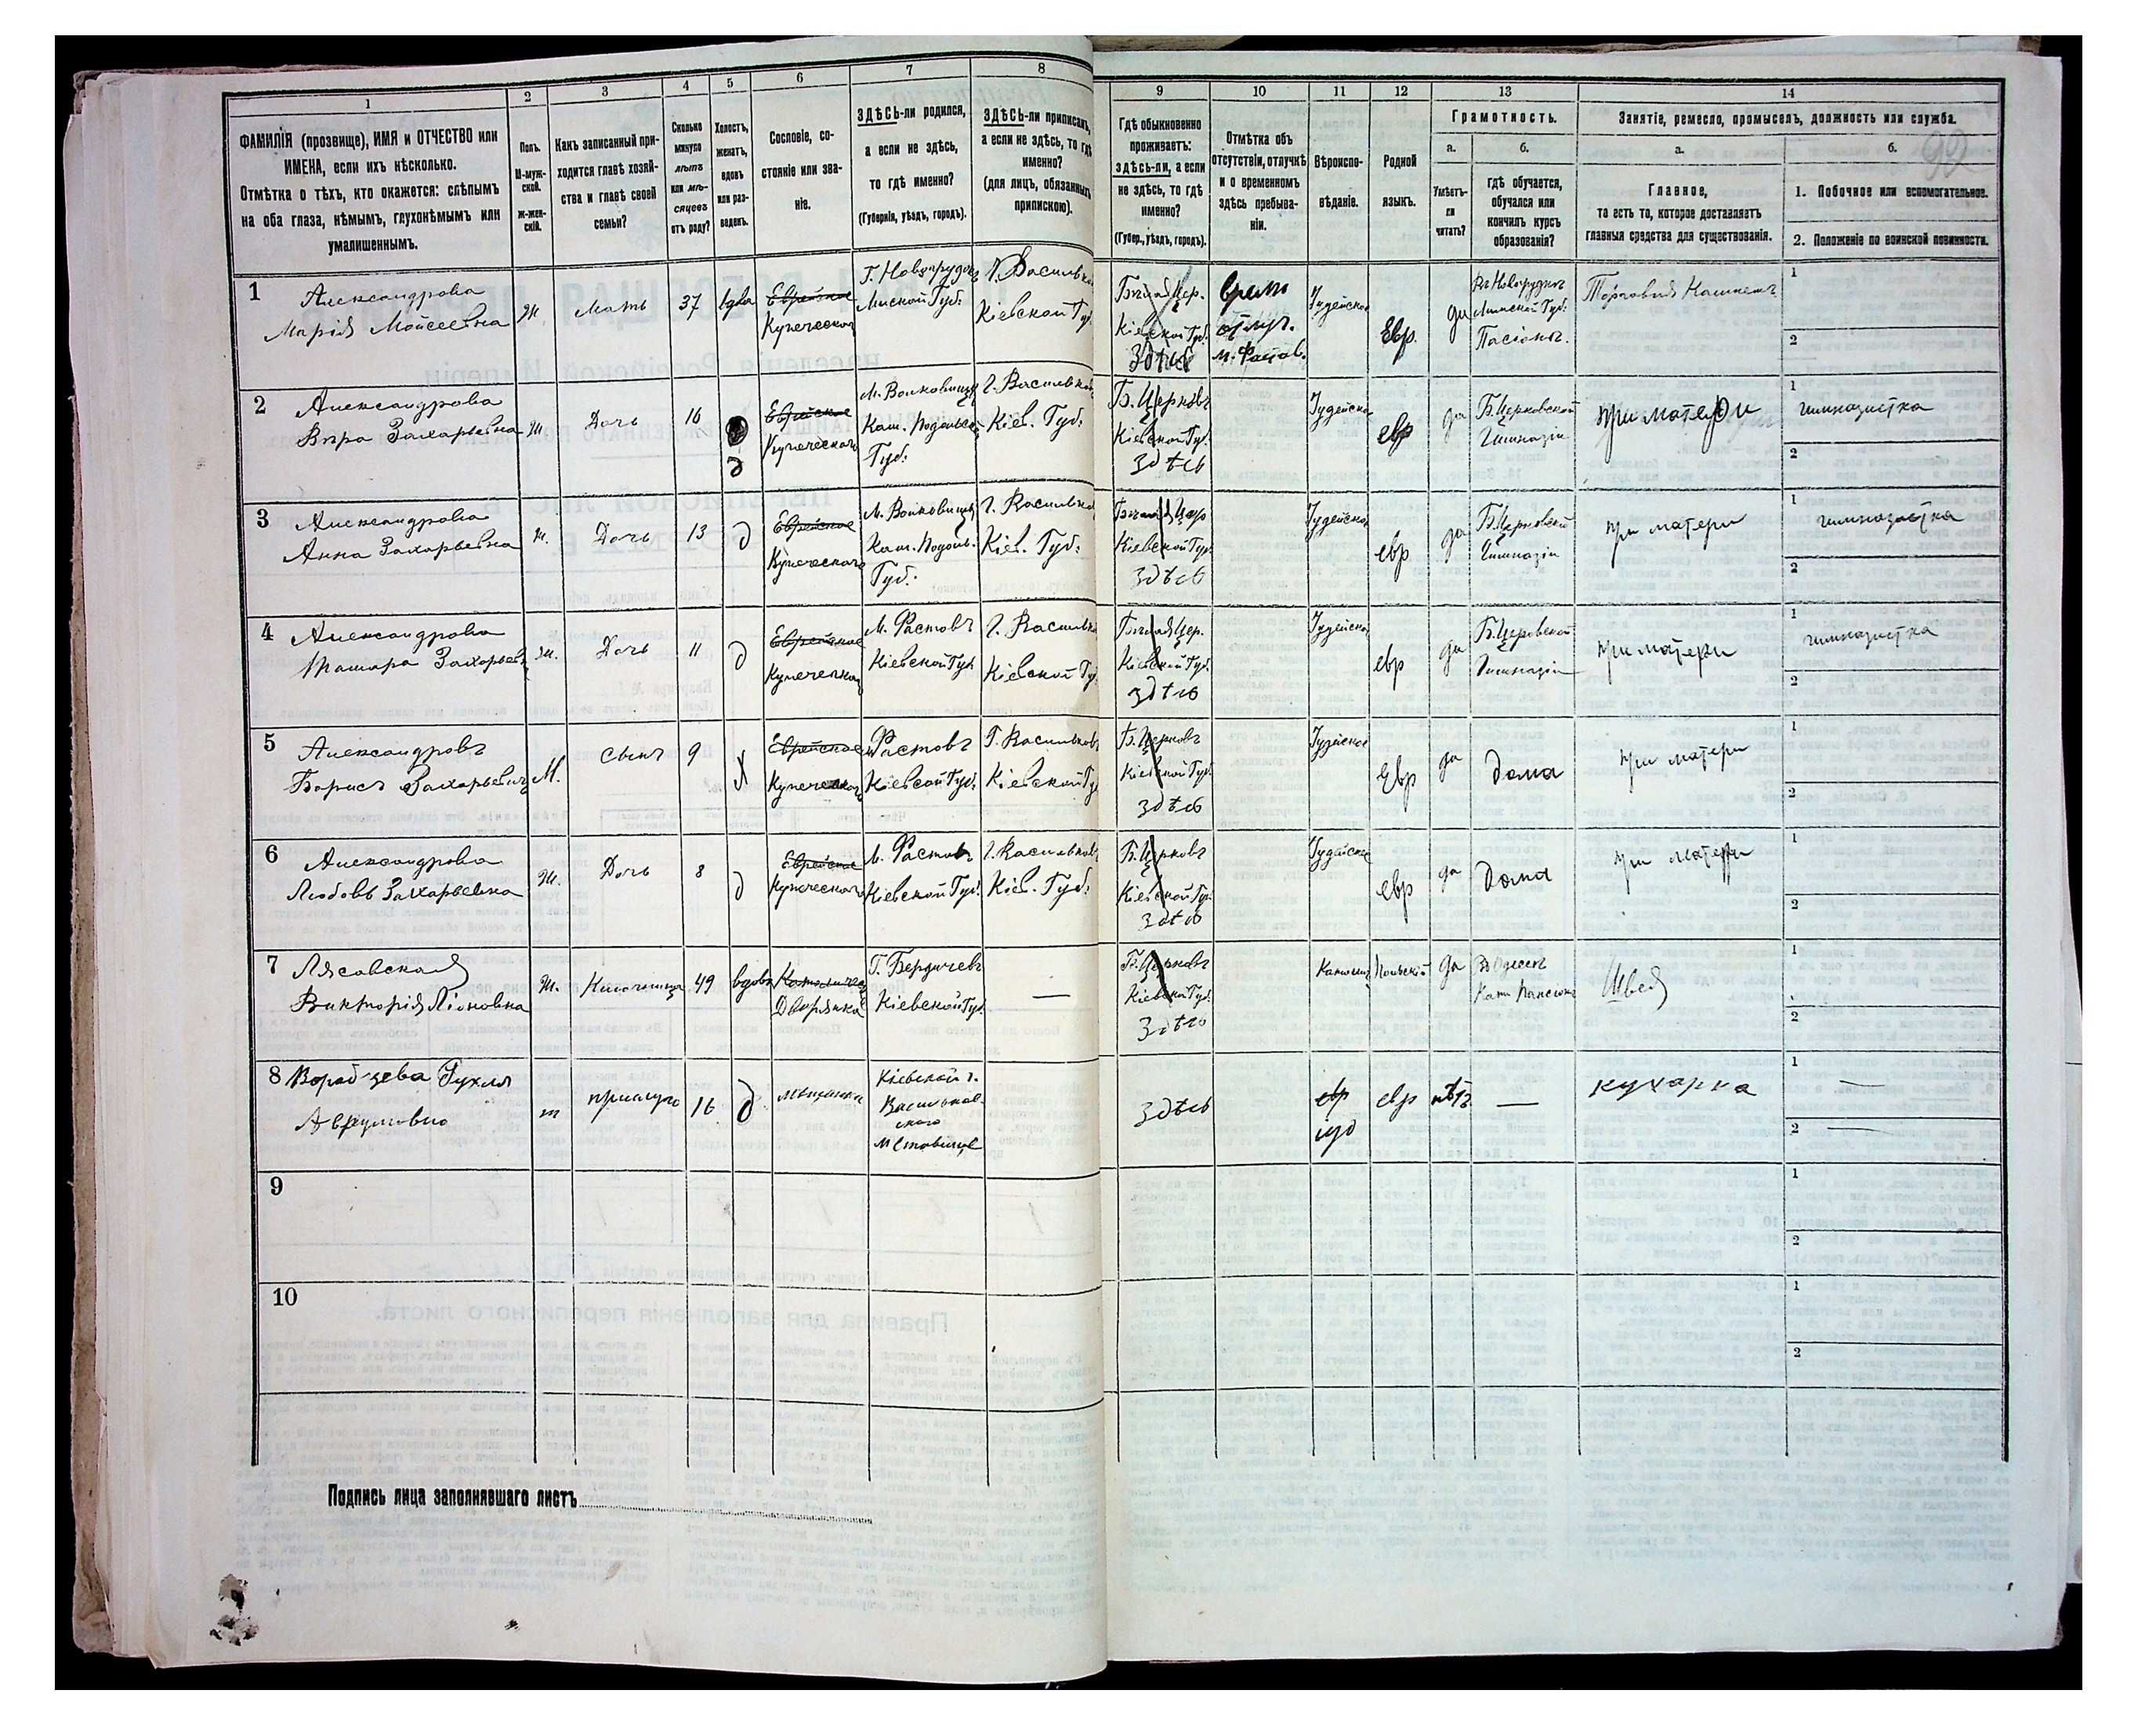 1
2
3
4
5
6
7
8
ФАМИЛІЯ (прозвище), ИМЯ и ОТЧЕСТВО или
ИМЕНА, если ихъ нѣсколько.
Отмѣтка о тѣхъ, кто окажется: слѣпымъ
на оба глаза, нѣмымъ, глухонѣмымъ или
умалишеннымъ.
Полъ.
М-муж-
ской.
Ж-жен-
скій.
Какъ записанный при-
ходится главѣ хозяй-
ства и главѣ своей
семьи?
Сколько
минуло
лѣтъ
или мѣ-
сяцевъ
отъ роду?
Холостъ,
женатъ,
вдовъ
или раз-
веденъ.
Сословіе, со-
стояніе или зва-
ніе.
ЗДѢСЬ-ли родился,
а если не здѣсь,
то гдѣ именно?
(Губернія, уѣздъ, городъ).
ЗДѢСЬ-ли приписанъ,
а если не здѣсь, то гдѣ
именно?
(для лицъ, обязанныхъ
припискою).
9
10
11
12
13
14
Гдѣ обыкновенно
проживаетъ:
здѣсь-ли, а если
не здѣсь, то гдѣ
именно?
(Губер., уѣздъ, городъ).
Отмѣтка объ
отсутствіи, отлучкѣ
и о временномъ
здѣсь пребыва-
ніи.
Вѣроиспо-
вѣданіе.
Родной
языкъ.
Грамотность.
а.
б.
Умѣетъ-
ли
читать?
гдѣ обучается,
обучался или
кончилъ курсъ
образованія?
Занятіе, ремесло, промыселъ, должность или служба.
а.
б.
Главное,
то есть то, которое доставляетъ
главныя средства для существованія.
1. Побочное или вспомогательное.
2. Положеніе по воинской повинности.
1
Александрова
Марія Мойсеевна
Ж.
Мать
37
вдва
Еврейское
Купеческой
Г. Новогрудокъ
Минской Губ.
Г. Васильков
Кіевской Губ.
Бѣлая Цер.
Кіевской Губ.
Здѣсь
врем
отлуч.
м. Фастов.
Іудейское
Евр.
да
Въ Новогрудкѣ
Минской Губ:
Пасіонъ.
1
2
2
Александрова
Вѣра Захарьевна
Ж
Дочь
16
д
Еврейское
Купеческой
М. Волковинцы
Кам. Подольск.
Губ:
Г. Васильков
Кіев. Губ:
Б. Церковъ
Кіевской Губ.
здѣсь
Іудейское
евр
да
Б. Церковской
Гимназіи
при матери
1
гимназистка
2
3
Александрова
Анна Захарьевна
Ж.
Дочь
13
д
Еврейское
Купеческой
М. Волковинцы
Кам. Подоль.
Губ:
Г. Васильков
Кіев. Губ:
Бѣлая Цер
Кіевской Губ.
здѣсь
Іудейское
евр
да
Б. Церковской
Гимназіи
при матери
1
гимназистка
2
4
Александрова
Тамара Захарьевн
Ж.
Дочь
11
д
Еврейское
Купеческой
М. Фастовъ
Кіевской Губ.
Г. Васильков
Кіевской Губ.
Бѣлая Цер.
Кіевской Губ.
здѣсь
Іудейское
евр
да
Б. Церковской
Гимназіи
при матери
1
гимназистка
2
5
Александровъ
Борисъ Захарьевичъ
М.
Сынъ
9
х
Еврейское
Купеческой
Фастовъ
Кіевской Губ:
Г. Васильковъ
Кіевской Губ
Б. Церковъ
Кіевской Губ.
здѣсь
Іудейское
Евр
да
дома
при матери
1
2
6
Александрова
Любовь Захарьевна
Ж.
Дочь
8
д
Еврейское
Купеческой
М. Фастовъ
Кіевской Губ.
Г. Васильковъ
Кіев. Губ:
Б. Церковъ
Кіевской Губ.
здѣсь
Іудейское
евр
да
дома
при матери
1
2
7
Лясовская
Викторія Ліоновна
Ж.
49
вдова
Дворянка
Г. Бердичевъ
Кіевской Губ.
—
Б. Церковъ
Кіевской Губ.
здѣсь
Польскій
да
Въ Одессѣ
Швея
1
2
8
Ж
прислуга
16
д
мѣщанка
Кіевской г.
Васильков-
скаго
м Ставище
здѣсь
евр
іуд
евр
нѣтъ
—
кухарка
1
—
2
—
9
1
2
10
1
2
Подпись лица заполнявшаго листъ